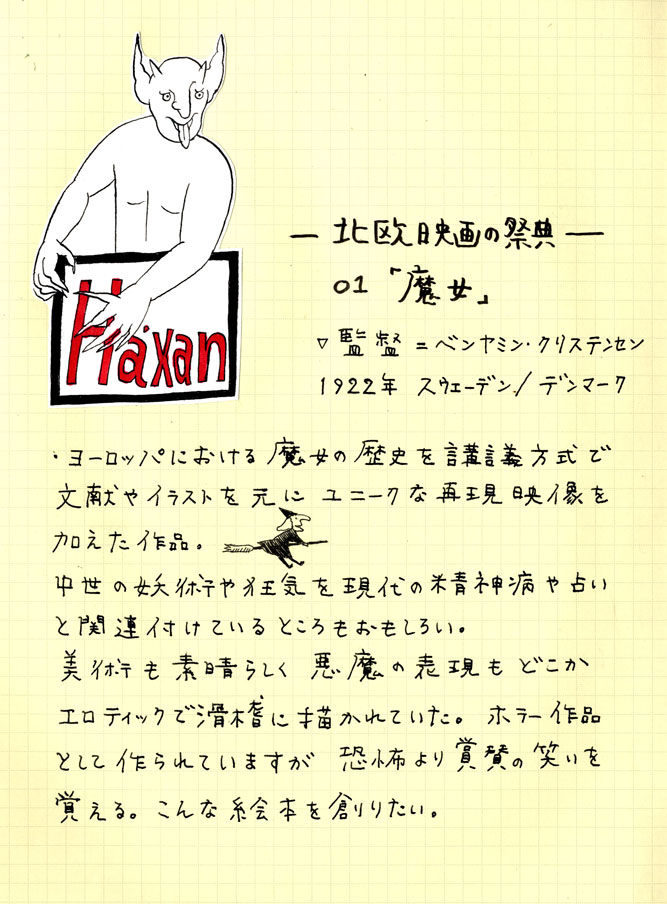 Häxan
— 北欧映画の祭典 —
01 「魔女」
▽ 監督 = ベンヤミン・クリステンセン
1922年 スウェーデン/デンマーク
・ヨーロッパにおける魔女の歴史を講義方式で
文献やイラストを元にユニークな再現映像を
加えた作品。
中世の妖術や狂気を現代の精神病や占い
と関連付けているところもおもしろい。
美術も素晴らしく悪魔の表現もどこか
エロティックで滑稽に描かれていた。ホラー作品
として作られていますが恐怖より賞賛の笑いを
覚える。こんな絵本を創りたい。